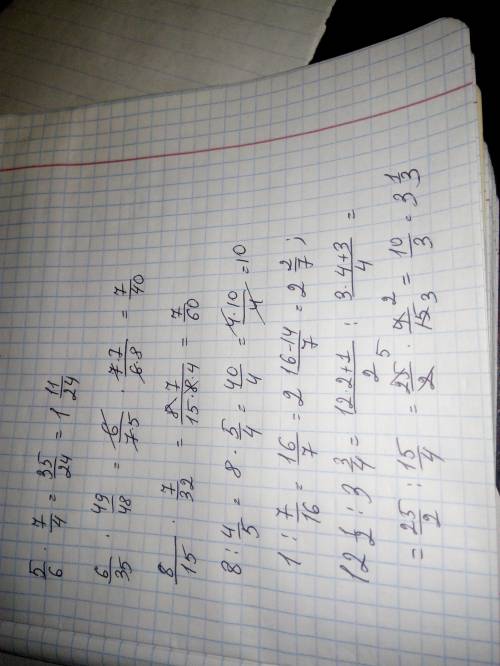 5/6 · 7/4 = 35/24 = 1 11/24
6/35 · 49/48 = 6/7·5 · 7·7/6·8 = 7/40
8/15 · 7/32 = 8·7/15·8·4 = 7/60
8 : 4/5 = 8 · 5/4 = 40/4 = 4·10/4 = 10
1 : 7/16 = 16/7 = 2 16-14/7 = 2 2/7 ;
12 1/2 : 3 3/4 = 12·2+1/2 : 3·4+3/4 =
= 25/2 : 15/4 = 25 5/2 · 4 2/15 3 = 10/3 = 3 1/3